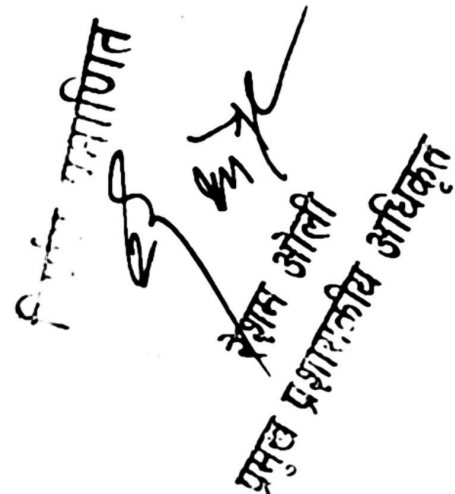 प्रमाणित
रेशम ओली
प्रमुख प्रशासकीय अधिकृत